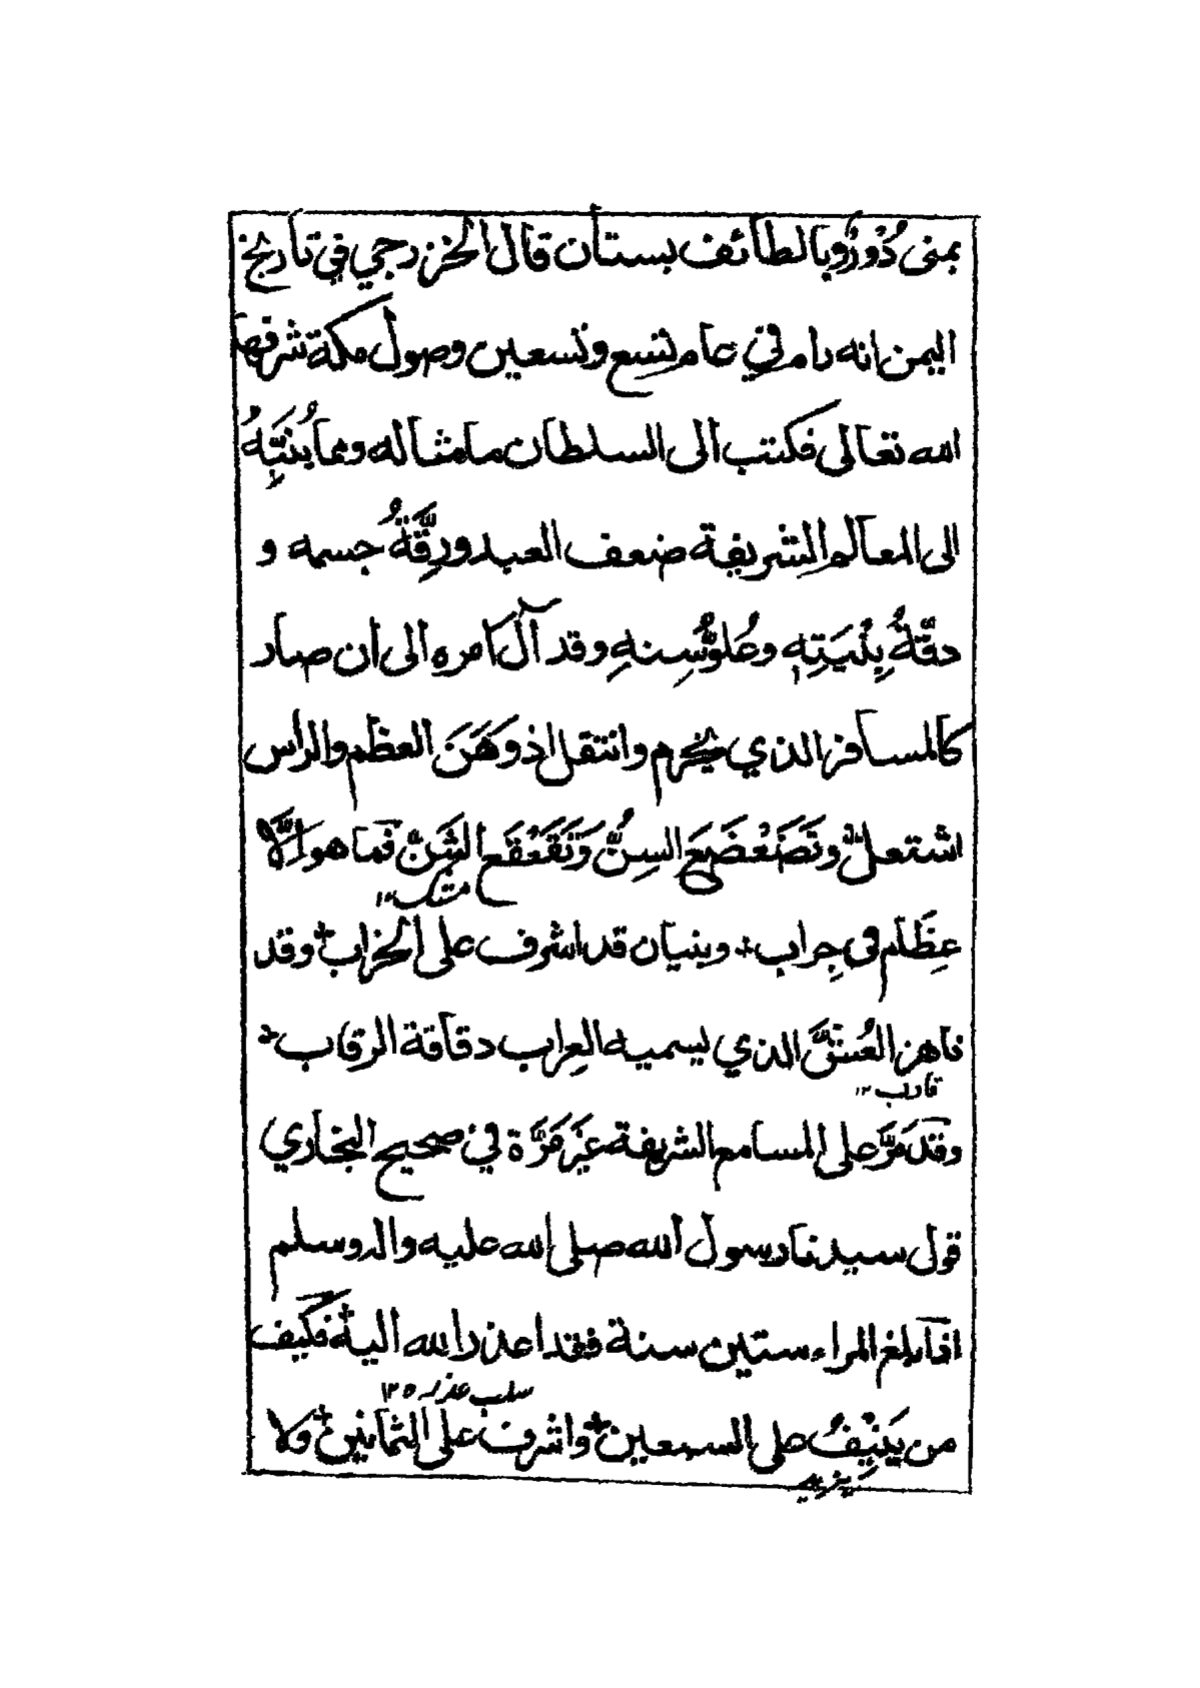 بمنى دُوْرٌ وبالطائف بستان قال الخزرجي في تاريخ
اليمن انه رام في عام تسع وتسعين وصول مكة شرفها
الله تعالى فكتب الى السلطان ما مثاله ومما يُنبِّهُ
الى المعالم الشريفة ضعف العبد ورِقَّةُ جسمه و
دقَّةُ بِنْيَتِهٖ وعُلوُّ سِنهِ وقد آل امره الى ان صار
كالمسافر الذي تخرم وانتقل اذ وَهَنَ العظم والراس
اشتعل وتَضَعْضَعَ السِنُّ وَتَقَعْقَع الشَنّ فما هو اِلَّا
مشک ١٢
عِظَام في جِراب وبنيان قد اشرف على الخراب وقد
ناهز العُشرَ الذي يسميه العِراب دقاقة الرقاب
قارب ١٢
وقد مَرَّ على المسامع الشريفة غَيْرَ مَرَّة في صحيح البخاري
قول سيدنا رسول الله صلى الله عليه واله وسلم
اذا بلغ المراء ستين سنة فقد اعذر الله اليه فكيف
سلب عذر ١٢
من يَنِيْفُ على السبعين واشرف على الثمانين ولا